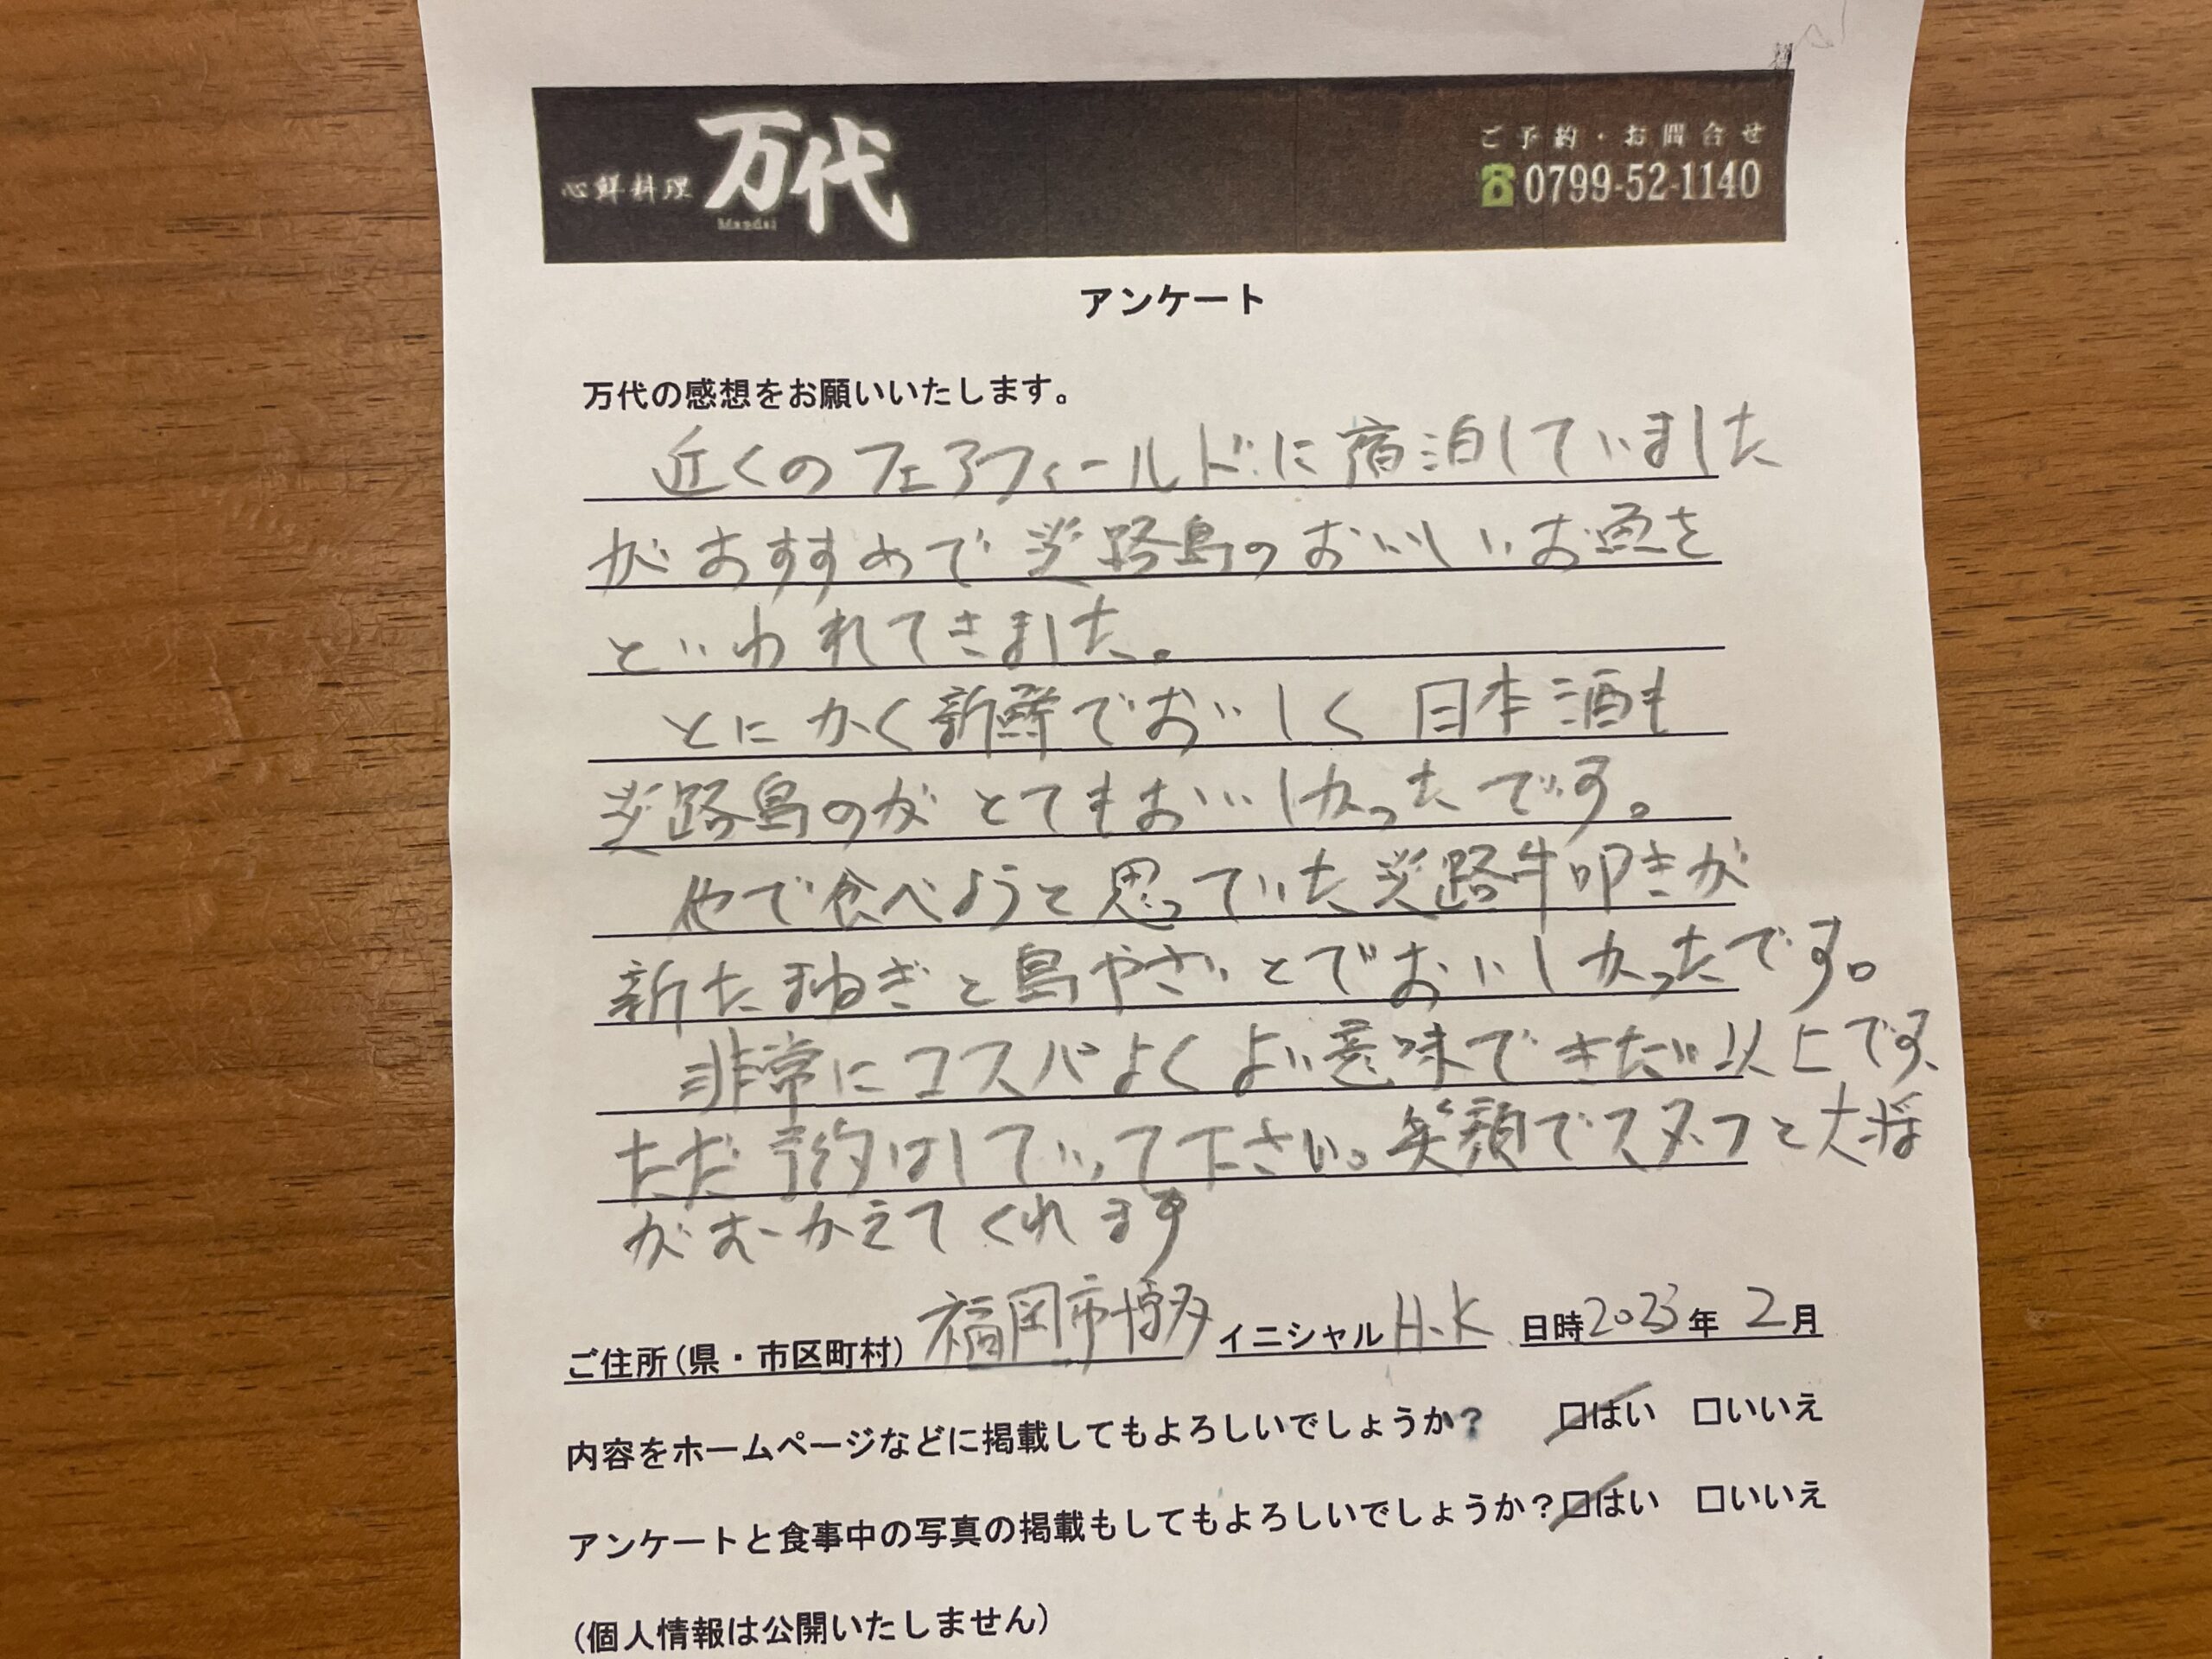 心鮮料理 万代
Mandai
ご予約・お問合せ
0799-52-1140
アンケート
万代の感想をお願いいたします。
近くのフェアフィールドに宿泊していました
がおすすめで淡路島のおいしいお魚を
といわれてきました。
とにかく新鮮でおいしく日本酒も
淡路島のがとてもおいしかったです。
他で食べようと思っていた淡路牛叩きが
新たまねぎと島やさいとでおいしかったです。
非常にコスパよくよい意味できたい以上です、
ただ予約はしていって下さい。笑顔でスタッフと大将
がむかえてくれます
ご住所(県・市区町村) 福岡市博多 イニシャル H.K 日時 2023年 2月
内容をホームページなどに掲載してもよろしいでしょうか? □はい □いいえ
アンケートと食事中の写真の掲載もしてもよろしいでしょうか?□はい □いいえ
(個人情報は公開いたしません)